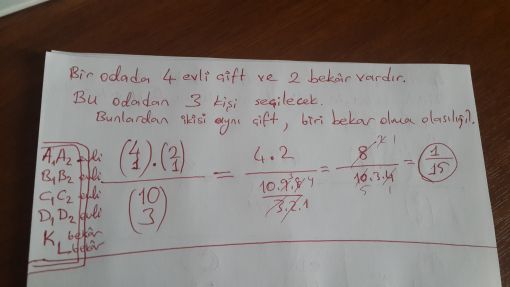 Bir odada 4 evli çift ve 2 bekâr vardır.
Bu odadan 3 kişi seçilecek.
Bunlardan ikisi aynı çift, biri bekar olma olasılığı?
A₁A₂ evli
B₁B₂ evli
C₁C₂ evli
D₁D₂ evli
K bekâr
L bekâr
(4 1).(2 1) / (10 3) = 4.2 / (10.9.8 / 3.2.1) = 8 / 10.3.4 = 1/15